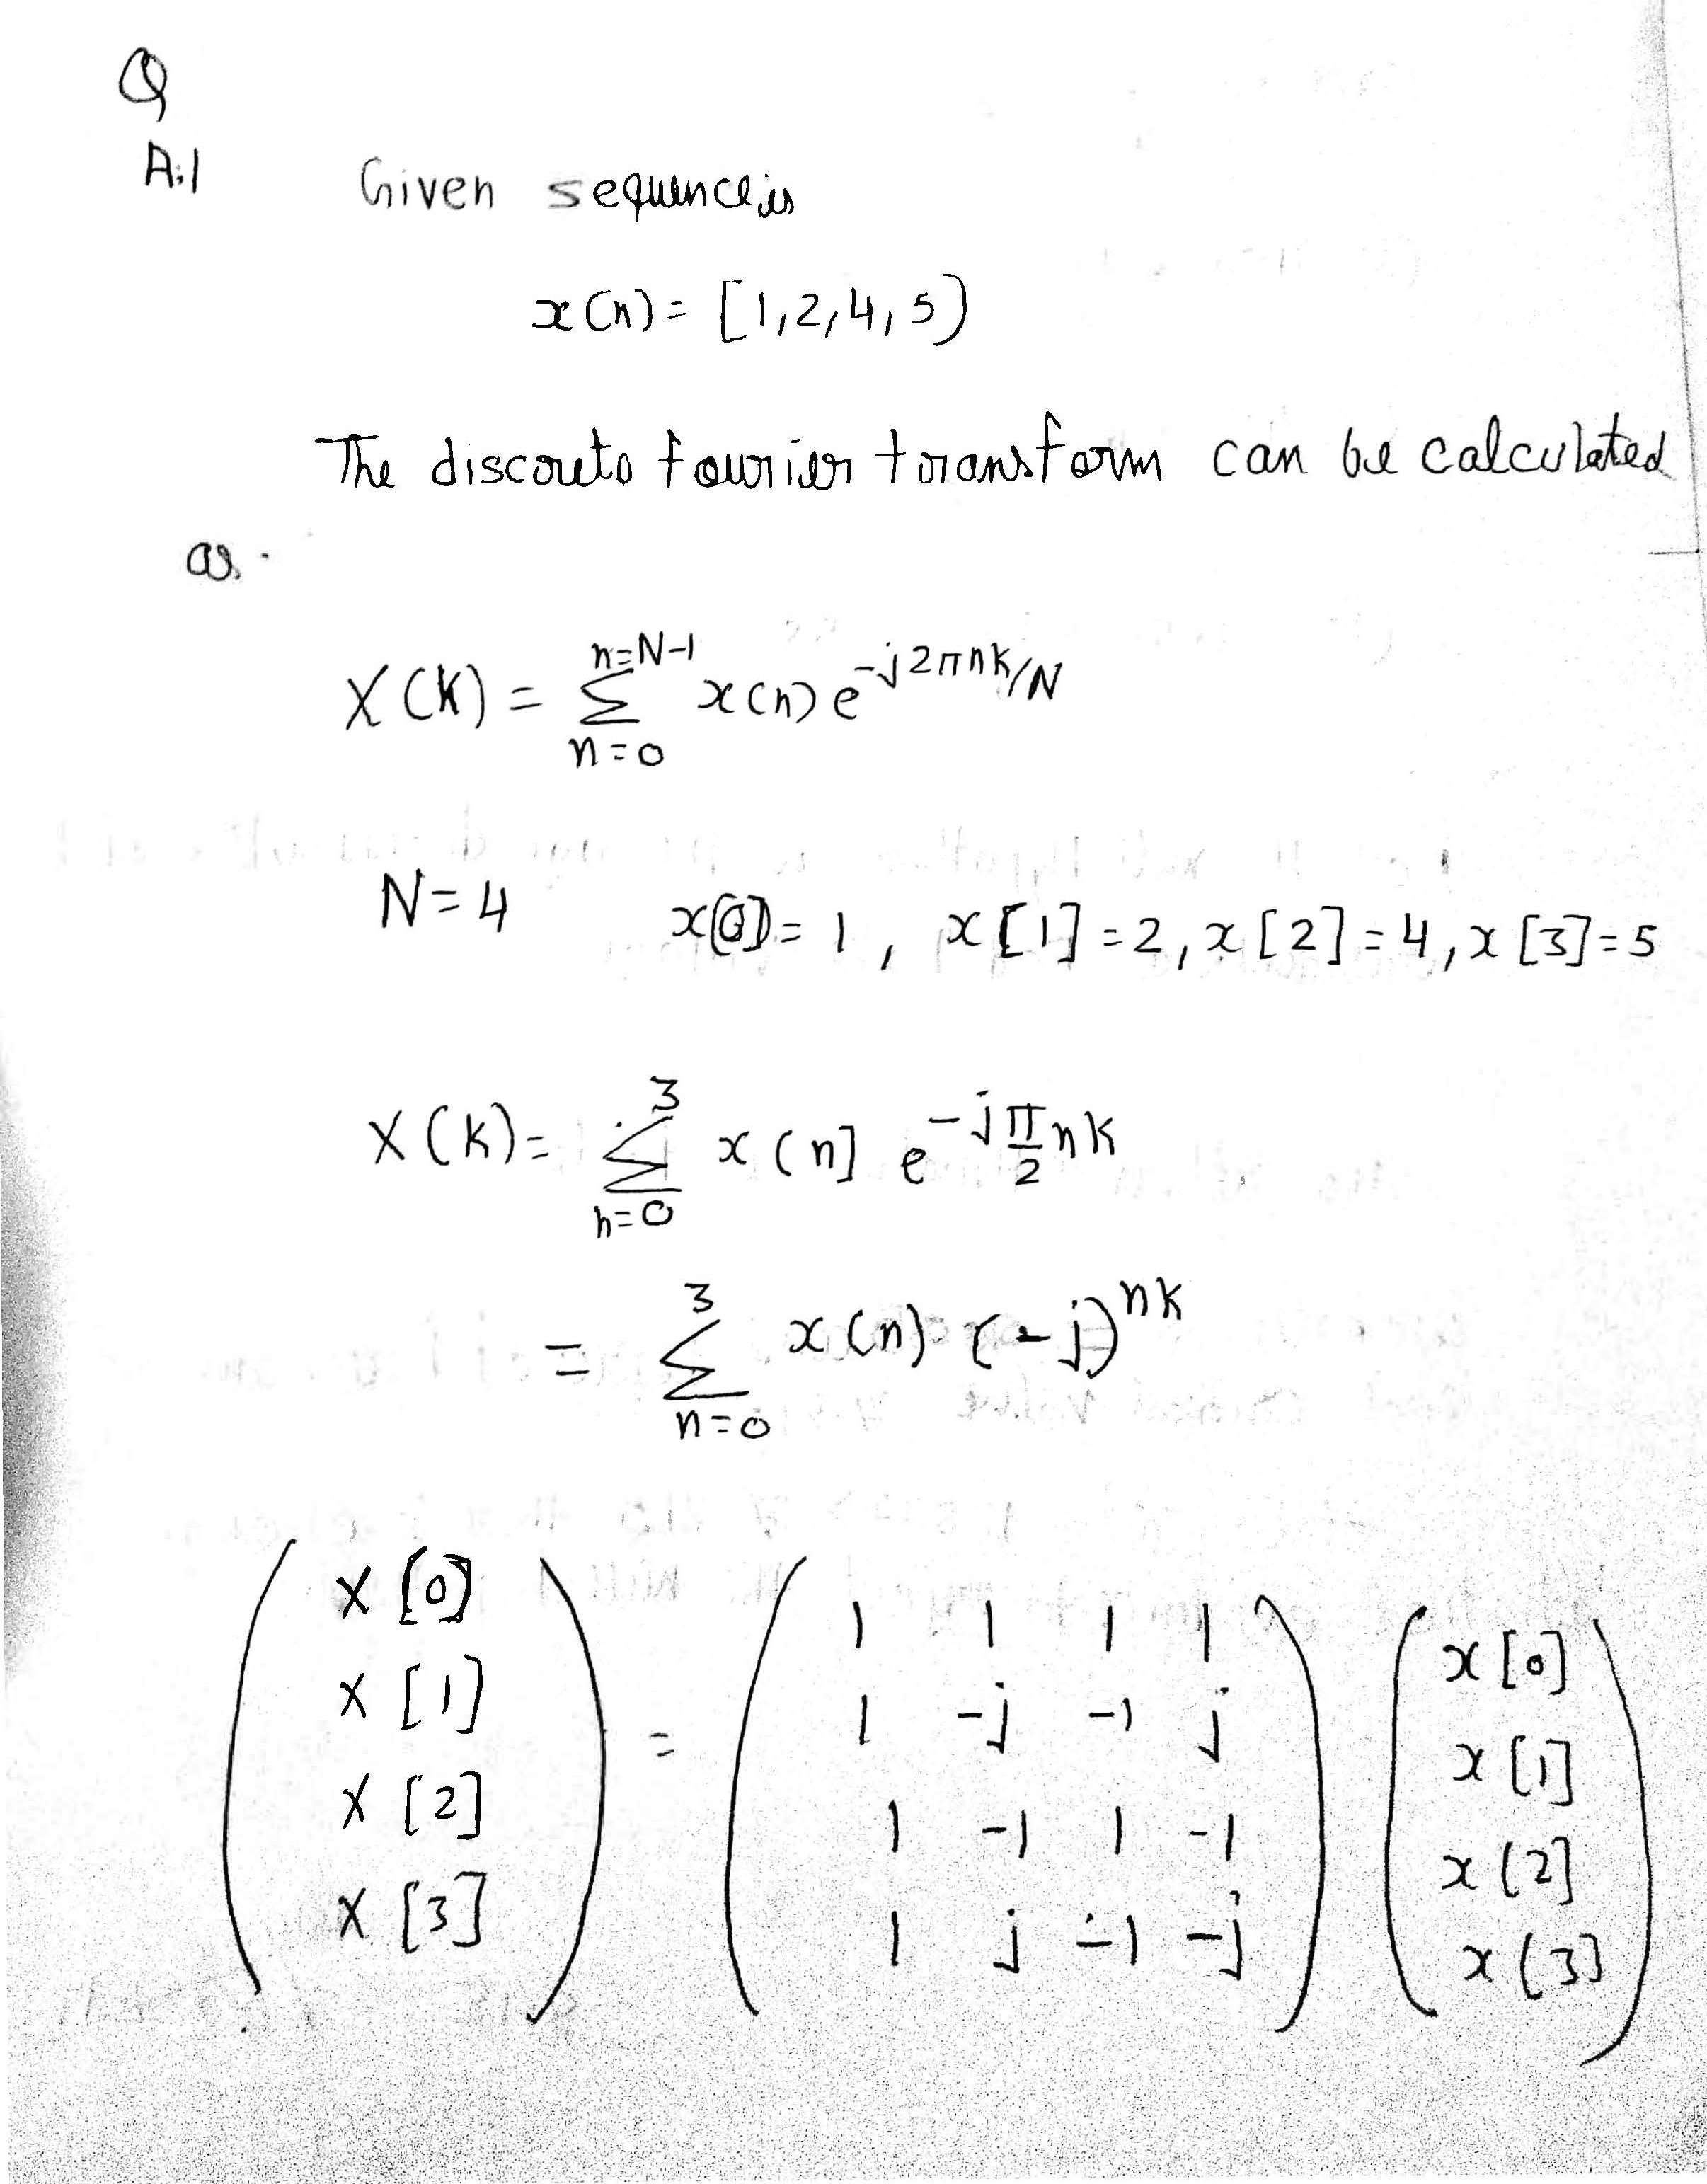 Q
A.1 Given sequence is
x(n) = [1,2,4,5)
The discreto fourier transform can be calculated
as.
X(K) = Σ_{n=0}^{n=N-1} x(n) e^{-j2πnk/N}
N=4 x[0]=1, x[1]=2, x[2]=4, x[3]=5
X(K) = Σ_{n=0}^{3} x(n] e^{-jπ/2 nk}
= Σ_{n=0}^{3} x(n) (-j)^{nk}
X[0] 1 1 1 1 x[0]
X[1] = 1 -j -1 j x[1]
X[2] 1 -1 1 -1 x[2]
X[3] 1 j -1 -j x(3]